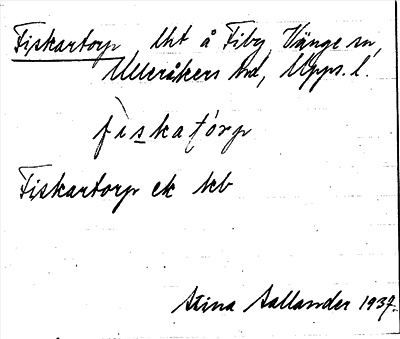 Fiskartorp lht å Fiby, Vänge sn,
Ulleråkers hd, Upps. l.
fìskatórp
Fiskartorp ek kb
Stina Sallander 1937.